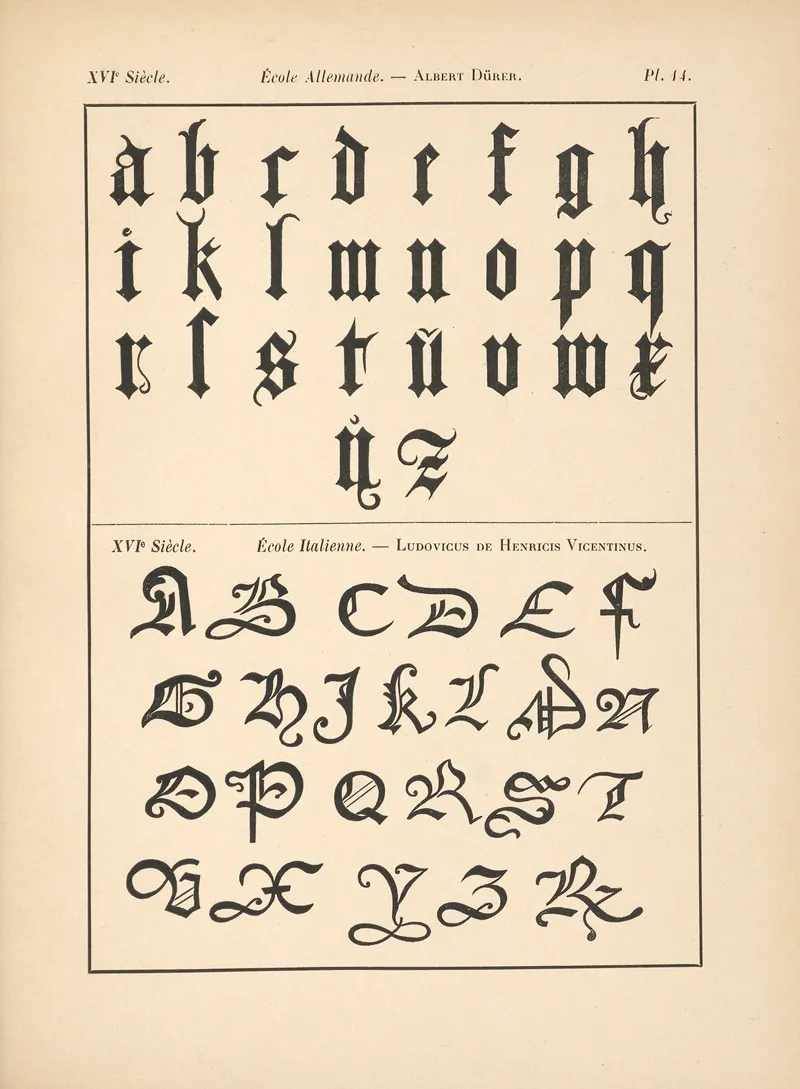 XVIᵉ Siècle. École Allemande. — Albert Dürer. Pl. 14.
a b c d e f g h
i k l m n o p q
r ſ s t ŭ v w x
ẙ z
XVIᵉ Siècle. École Italienne. — Ludovicus de Henricis Vicentinus.
A B C D E F
G H J K L M N
O P Q R S T
V X Y Z